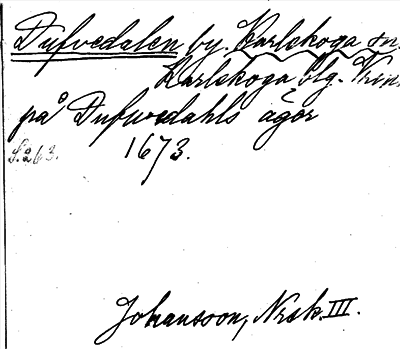 Dufvedalen by. Karlskoga sn.
Karlskoga blg.
på Dufwedahls ägor
S. 263. 1673.
Johansson, Nrsk. III.